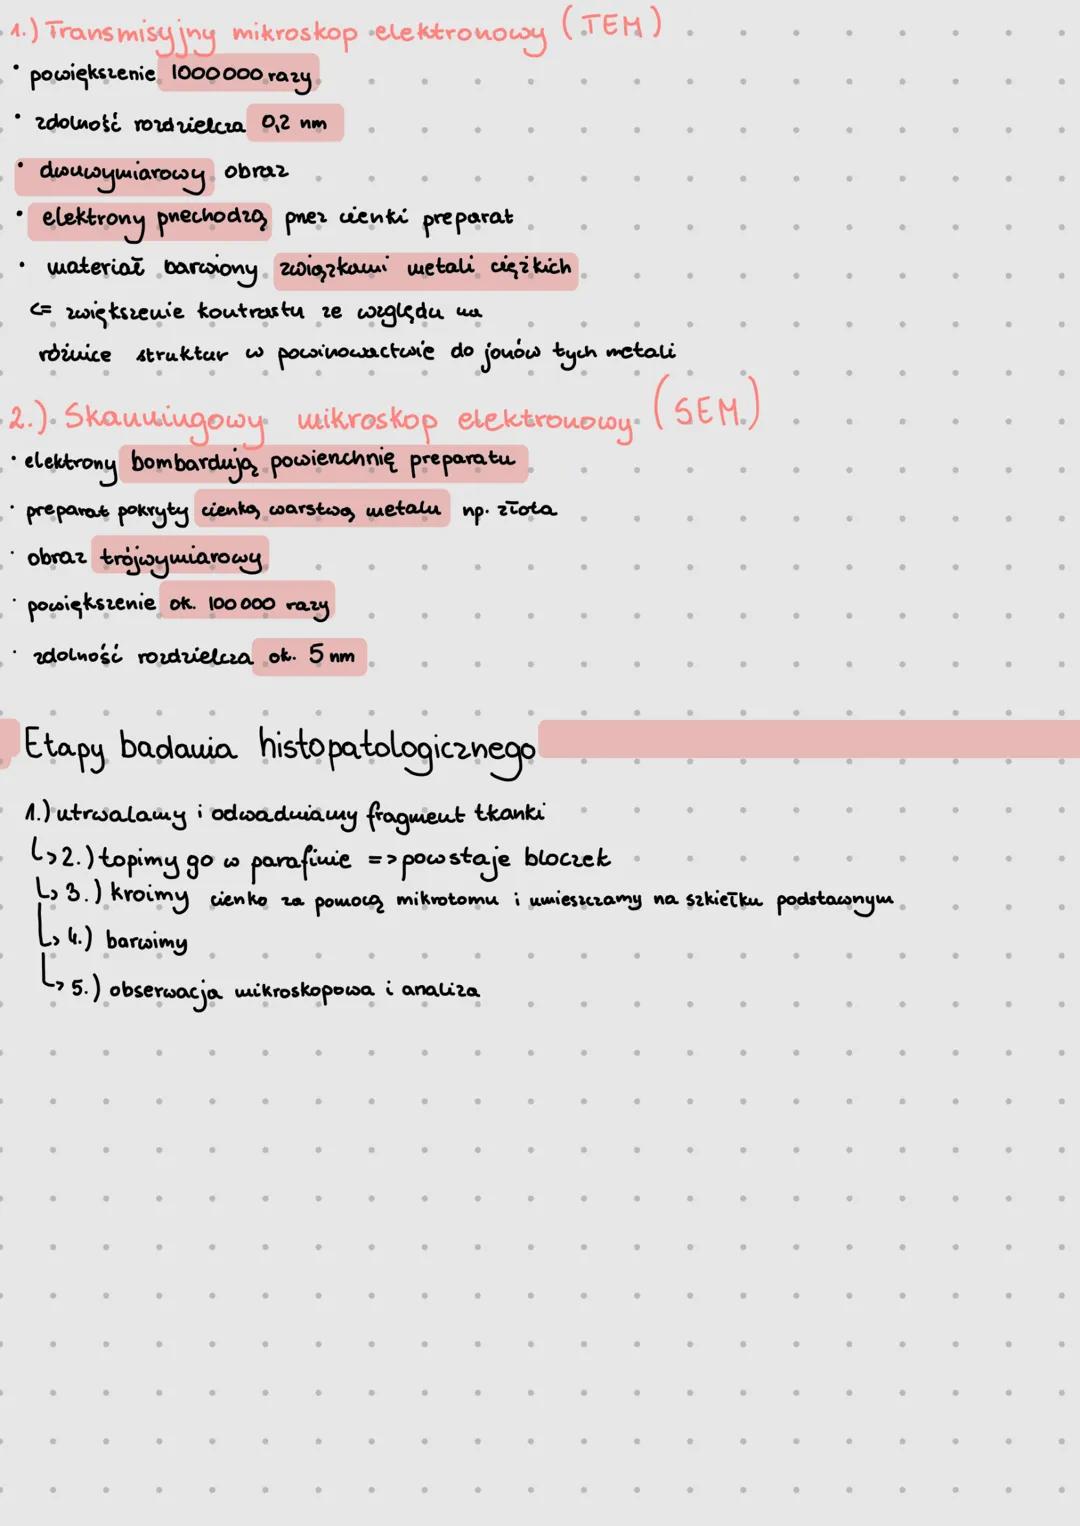 1.) Transmisyjny mikroskop elektronowy (TEM)
• powiększenie 1000 000 razy
• zdolność rozdzielcza 0,2 nm
• dwuwymiarowy obraz
• elektrony przechodzą przez cienki preparat
• materiał barwiony związkami metali ciężkich
<= zwiększenie kontrastu ze względu na
różnice struktur w powinowactwie do jonów tych metali
2.) Skanningowy mikroskop elektronowy (SEM)
• elektrony bombardują powierzchnię preparatu
• preparat pokryty cienką warstwą metalu np. złota
• obraz trójwymiarowy
• powiększenie ok. 100 000 razy
• zdolność rozdzielcza ok. 5 nm
Etapy badania histopatologicznego
1.) utrwalamy i odwadniamy fragment tkanki
↳ 2.) topimy go w parafinie => powstaje bloczek
↳ 3.) kroimy cienko za pomocą mikrotomu i umieszczamy na szkiełku podstawnym
↳ 4.) barwimy
↳ 5.) obserwacja mikroskopowa i analiza